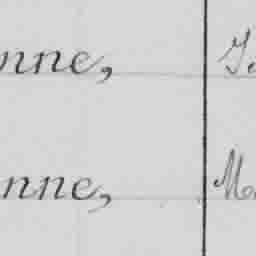 nne,
nne, M